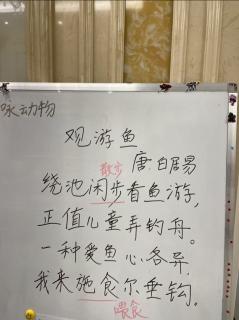 咏动物
观游鱼
唐·白居易
散步
绕池闲步看鱼游,
正值儿童弄钓舟。
一种爱鱼心各异,
我来施食尔垂钩。
喂食